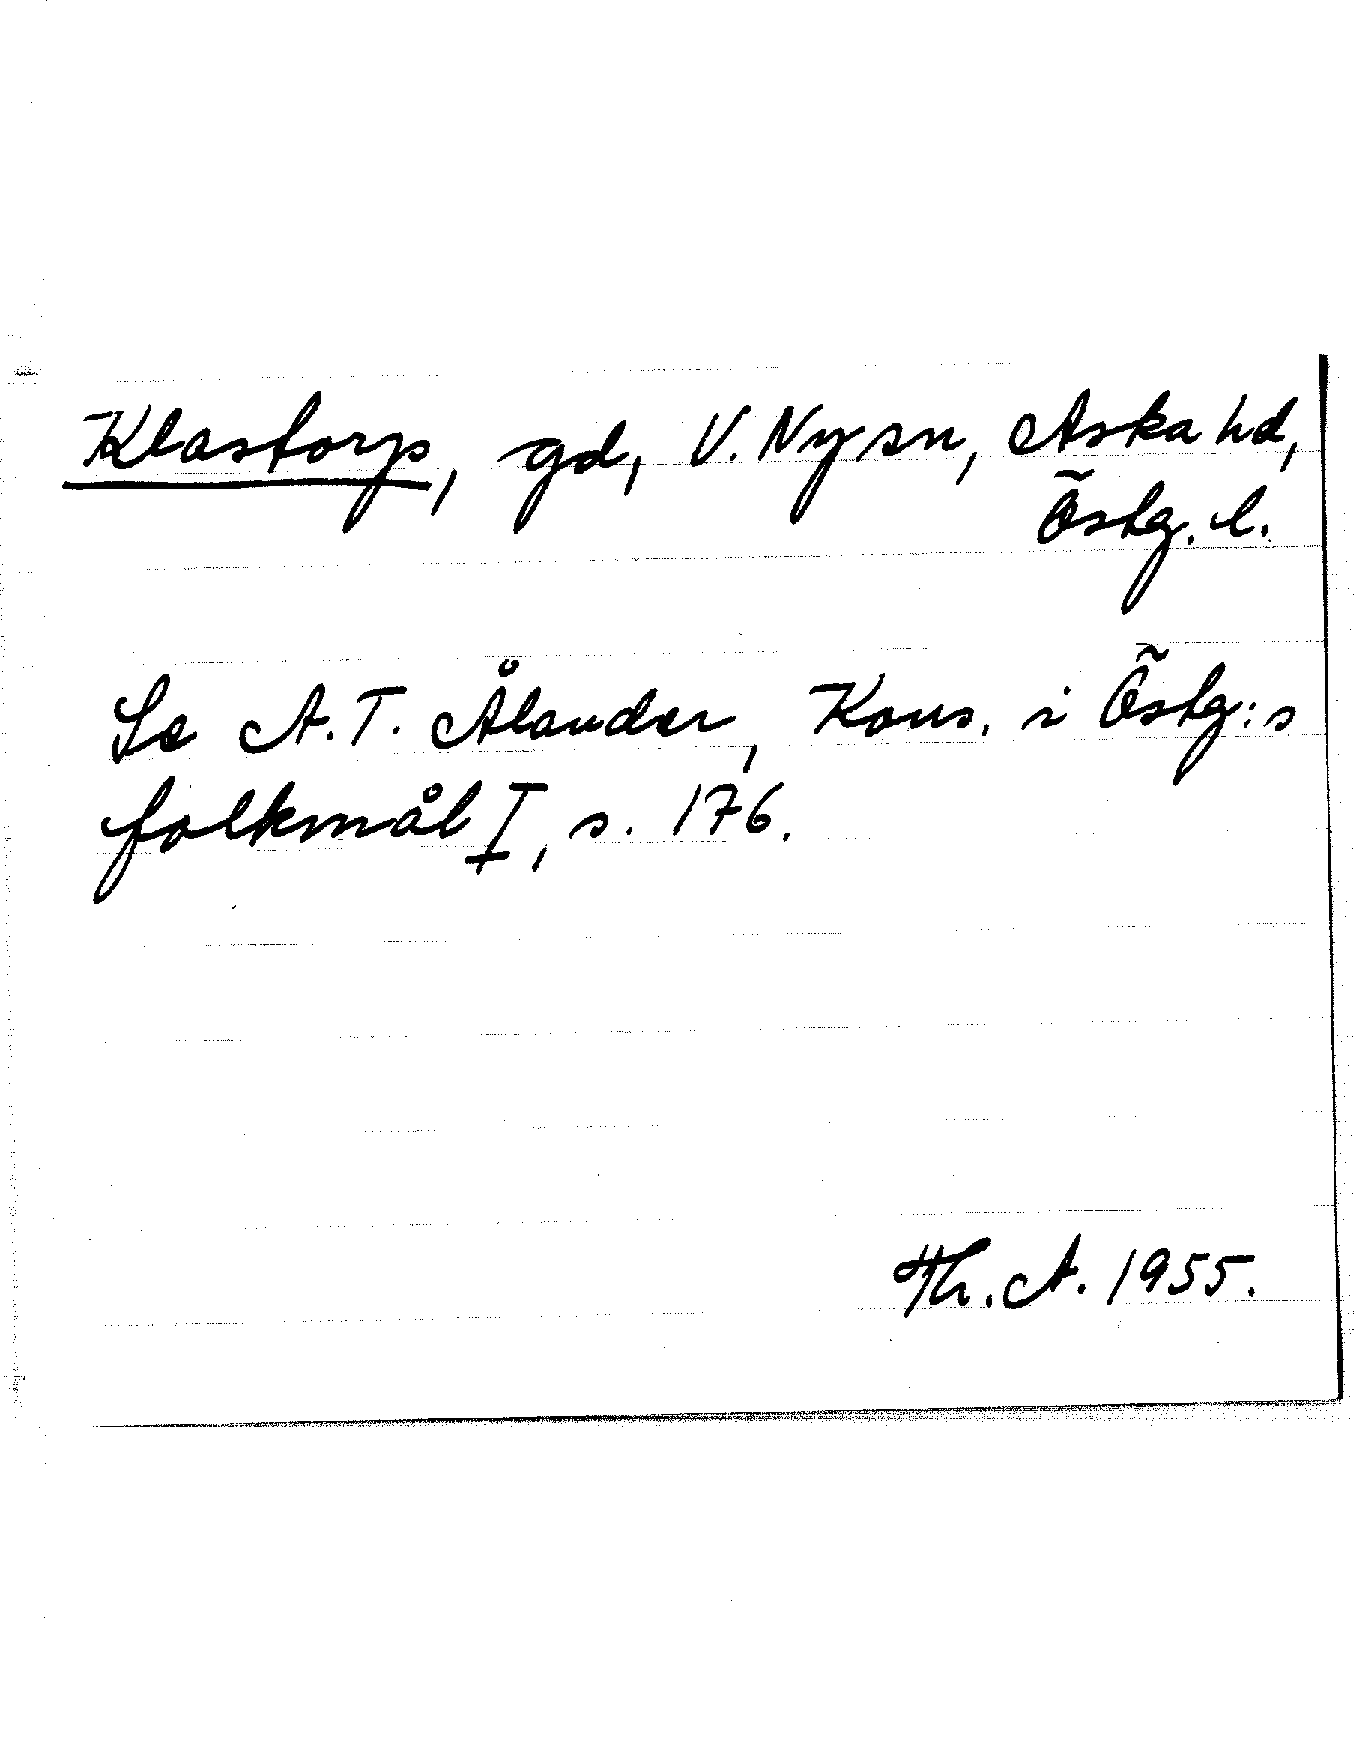 Klastorp, gd, V. Ny sn, Aska hd,
Östg. l.
Se A. T. Ålander, Kons. i Östg:s
folkmål I, s. 176.
Th. A. 1955.